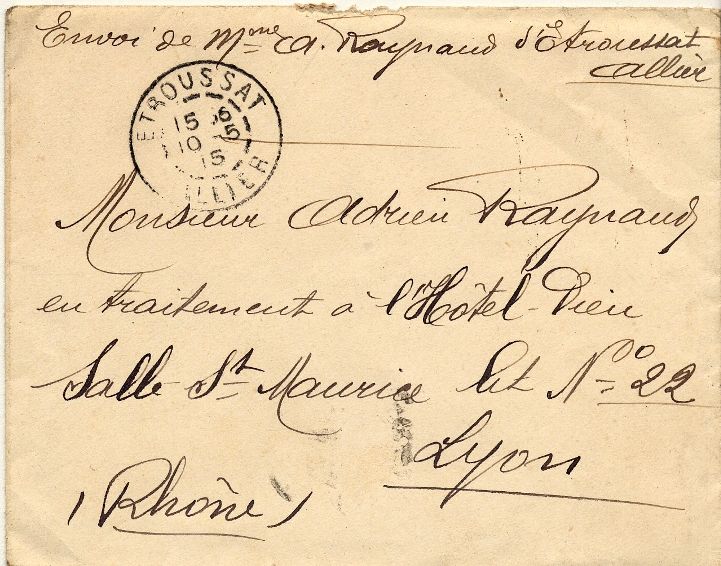 Envoi de Mme A. Raynaud d'Etroussat
Allier
ETROUSSAT
15
10
15
ALLIER
Monsieur Adrien Raynaud
en traitement à l'Hôtel-Dieu
Salle St Maurice lit No 22
Lyon
(Rhône)